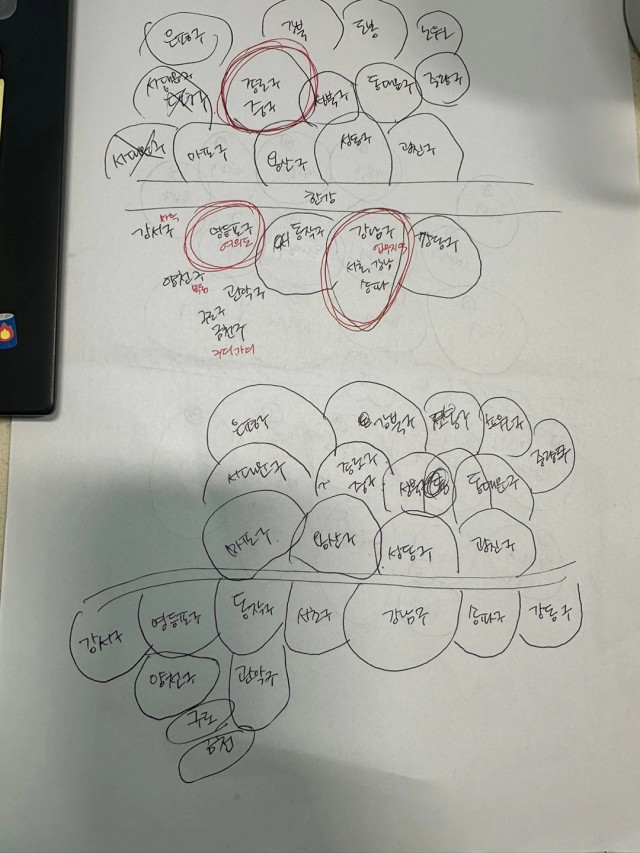 은평구
강북
도봉
노원
서대문구
종로구
중구
성북구
동대문구
중랑구
마포구
용산구
성동구
광진구
한강
강서구
영등포구
여의도
동작구
강남구
업무지역
서초, 강남
송파
강동구
양천구
목동
관악구
구로구
금천구
구디가디
은평구
강북구
노원구
중랑구
서대문구
종로구
중구
성북
동대문구
마포구
용산구
성동구
광진구
강서구
영등포구
동작구
서초구
강남구
송파구
강동구
양천구
관악구
구로
금천